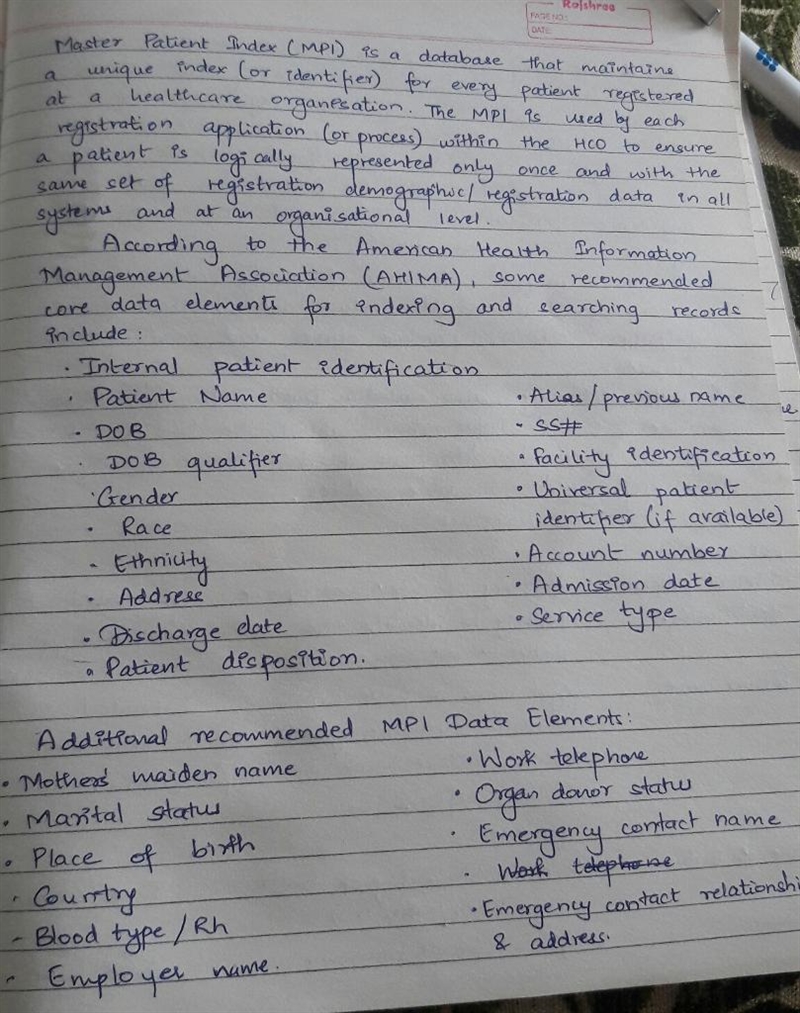 Rajshree
PAGE NO:
DATE:
Master Patient Index (MPI) is a database that maintains
a unique index (or identifier) for every patient registered
at a healthcare organesation. The MPI is used by each
registration application (or process) within the HCO to ensure
a patient is logically represented only once and with the
same set of registration demographic/ registration data in all
systems and at an organisational level.
According to the American Health Information
Management Association (AHIMA), some recommended
core data elements for indexing and searching records
include:
• Internal patient identification
• Patient Name
• DOB
• DOB qualifier
• Gender
• Race
• Ethnicity
• Address
• Discharge date
• Patient disposition.
• Alias/previous name
• SS#
• facility identification
• Universal patient
identifier (if available)
• Account number
• Admission date
• Service type
Additional recommended MPI Data Elements:
• Mother's maiden name
• Marital status
• Place of birth
• Country
- Blood type/Rh
- Employer name.
• Work telephone
• Organ donor status
• Emergency contact name
• Work telephone
• Emergency contact relationshi
& address.